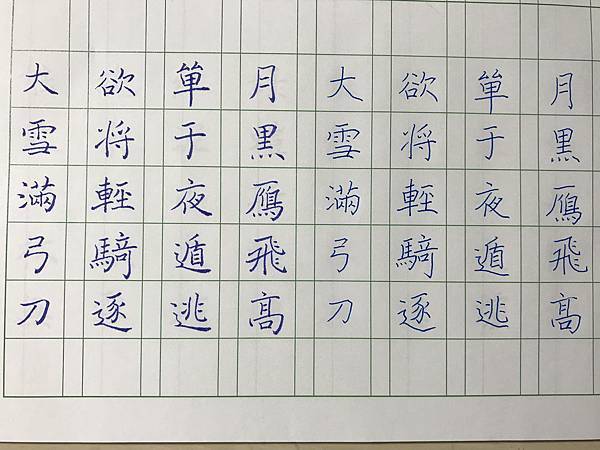 月黑鴈飛髙
單于夜遁逃
欲将輕騎逐
大雪滿弓刀
月黑鴈飛髙
單于夜遁逃
欲将輕騎逐
大雪滿弓刀